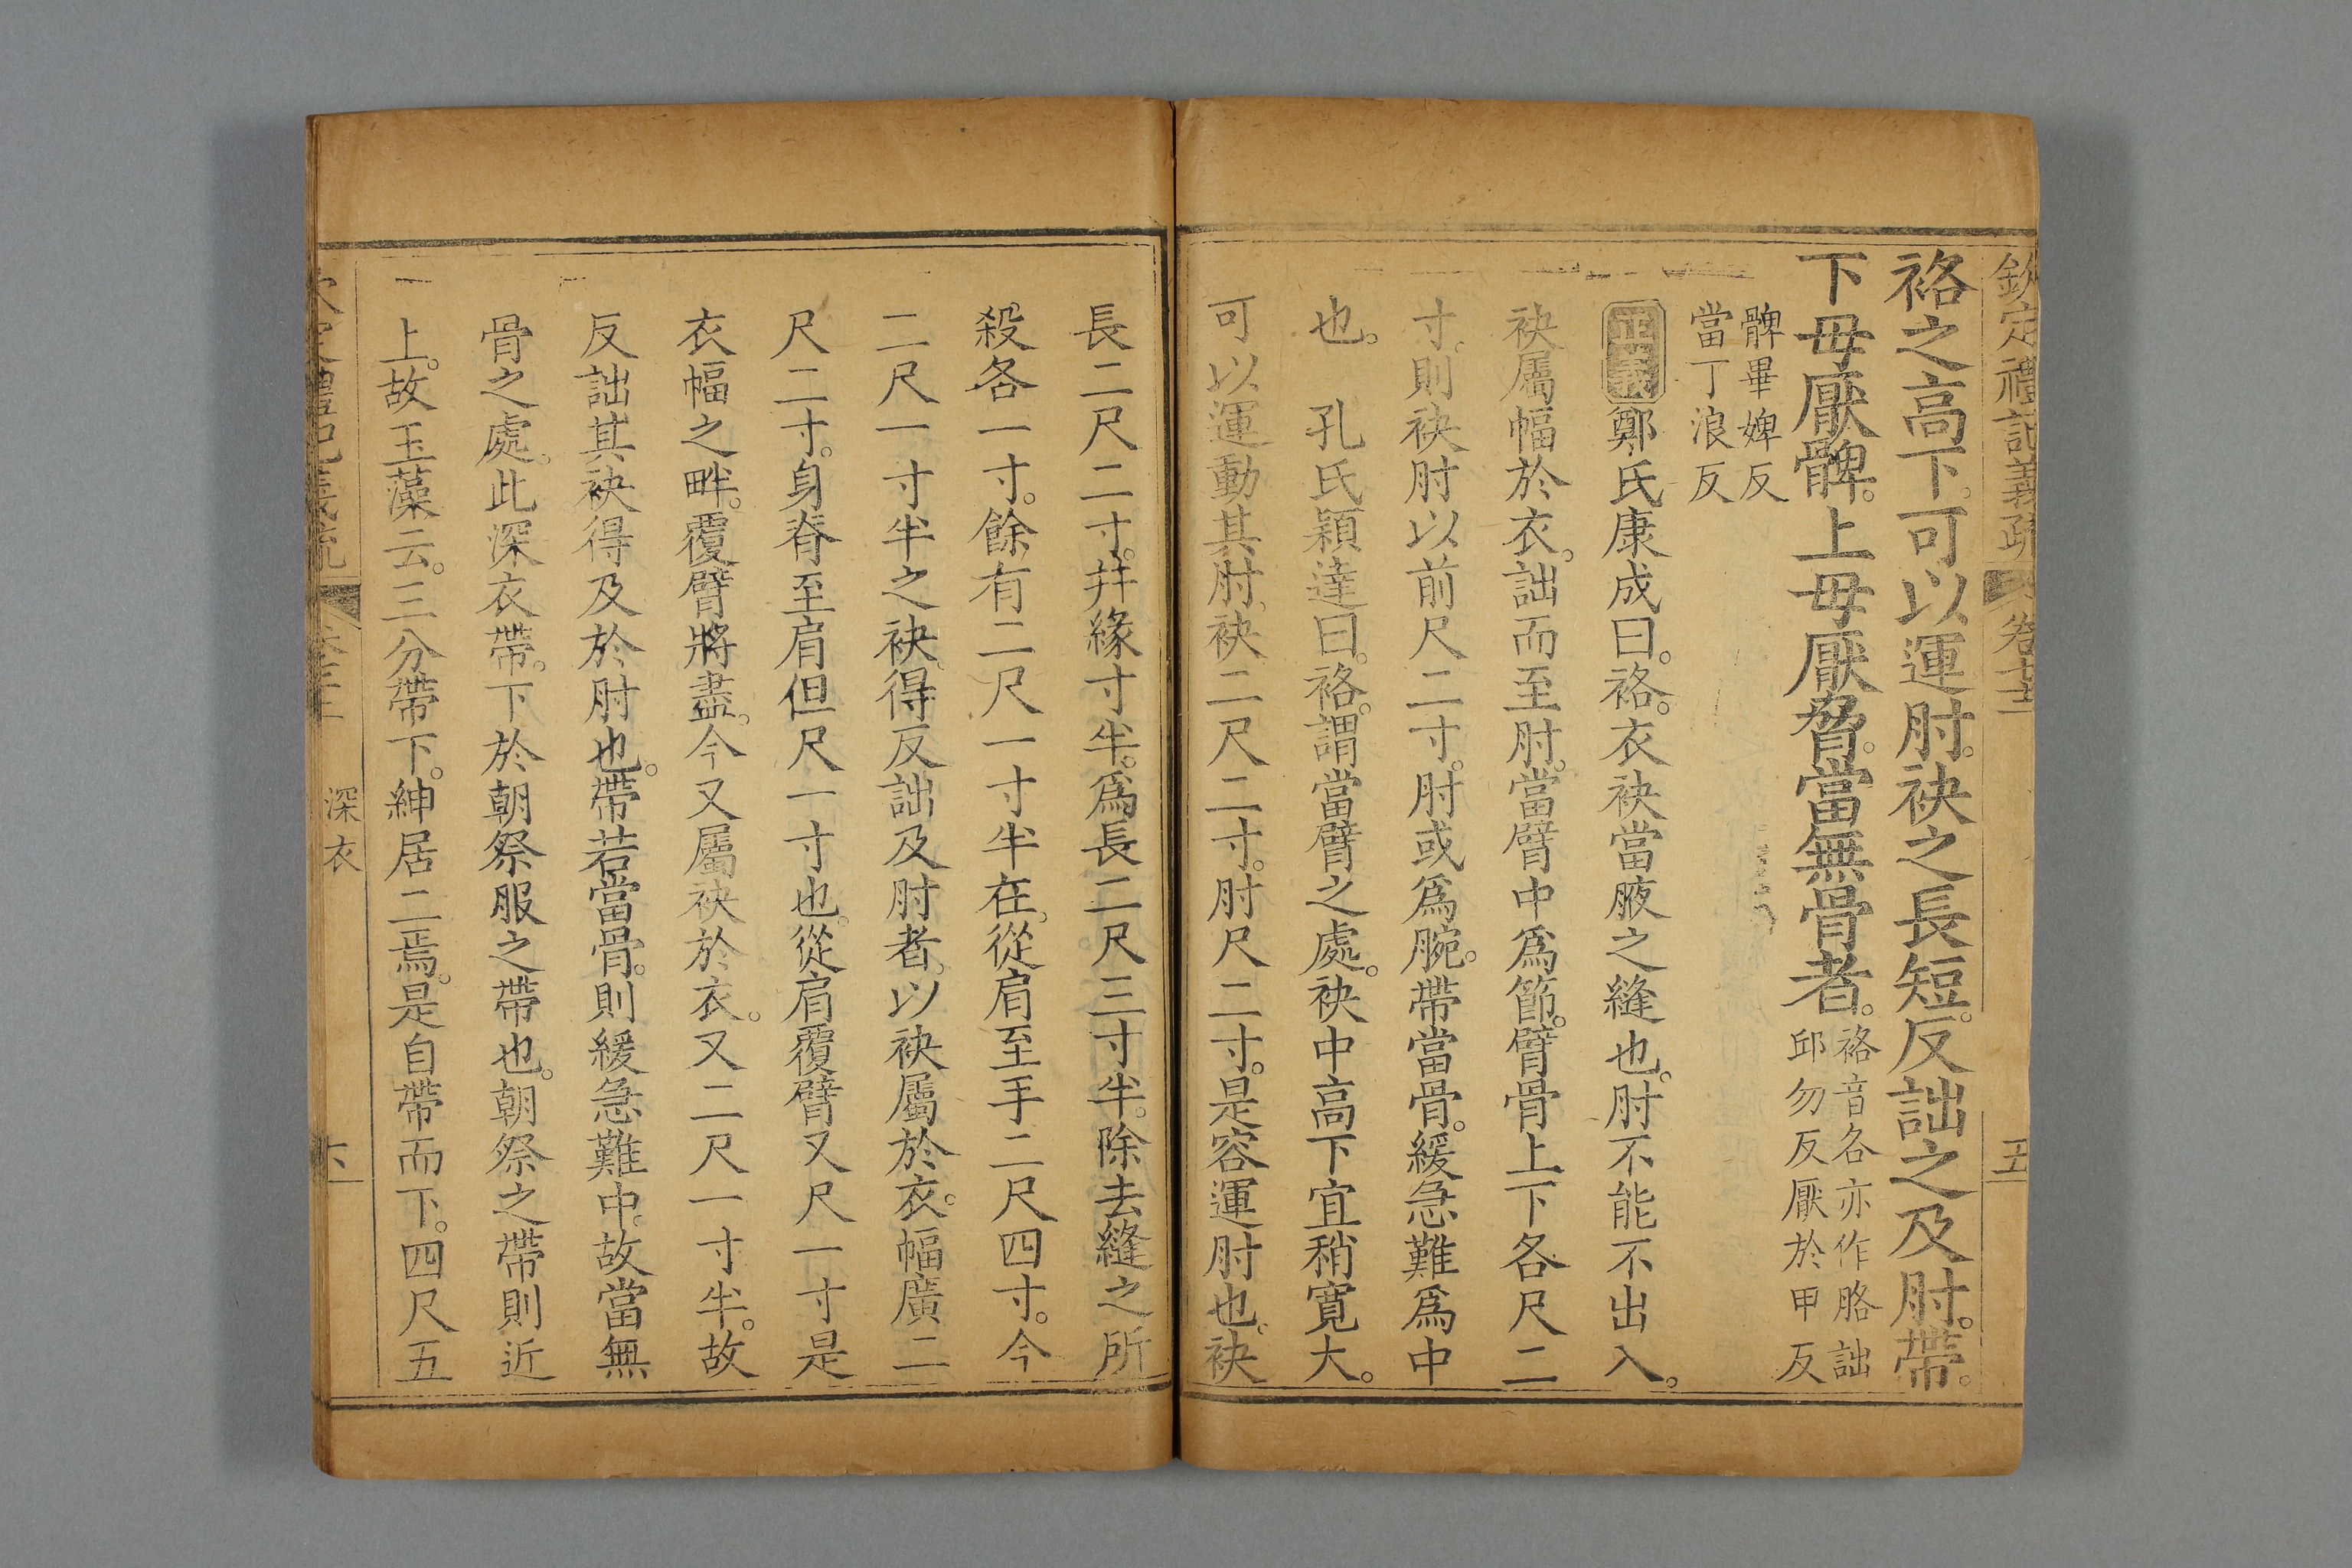 欽定禮記義疏 卷七十三 五
袼之高下。可以運肘。袂之長短。反詘之及肘。帶。
下毋厭髀。上毋厭脅。當無骨者。袼音各亦作胳詘
邱勿反厭於甲反
髀畢婢反
當丁浪反
正義鄭氏康成曰。袼。衣袂當腋之縫也。肘不能不出入。
袂屬幅於衣。詘而至肘。當臂中爲節。臂骨上下各尺二
寸。則袂肘以前尺二寸。肘或爲腕。帶當骨。緩急難爲中
也。 孔氏穎達曰。袼。謂當臂之處。袂中高下宜稍寛大。
可以運動其肘。袂二尺二寸。肘尺二寸。是容運肘也。袂
長二尺二寸。幷緣寸半。爲長二尺三寸半。除去縫之所
殺各一寸。餘有二尺一寸半在。從肩至手二尺四寸。今
二尺一寸半之袂。得反詘及肘者。以袂屬於衣。幅廣二
尺二寸。身脊至肩但尺一寸也。從肩覆臂又尺一寸是
衣幅之畔。覆臂將盡。今又屬袂於衣。又二尺一寸半。故
反詘其袂得及於肘也。帶若當骨。則緩急難中。故當無
骨之處。此深衣帶。下於朝祭服之帶也。朝祭之帶則近
上。故玉藻云。三分帶下。紳居二焉。是自帶而下。四尺五
深衣